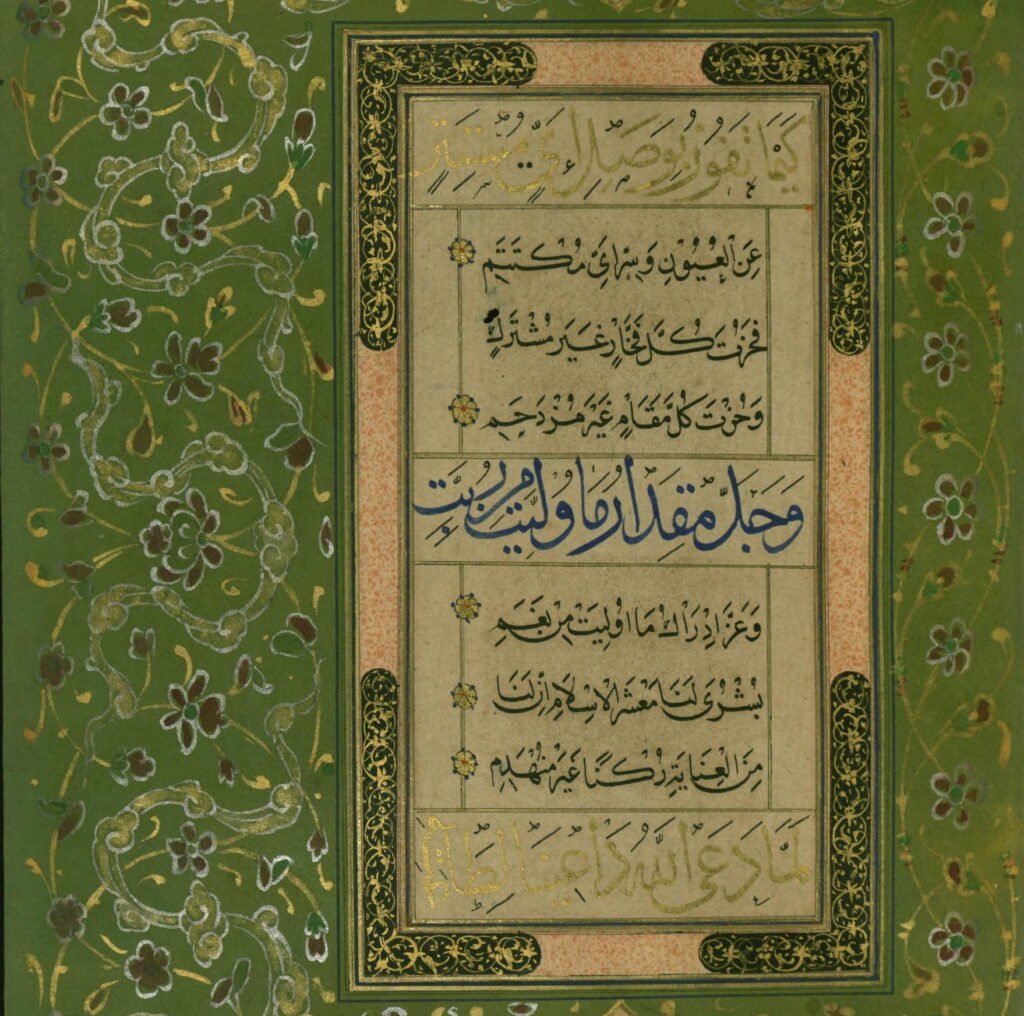 كَيْمَا تَفُوزُ بِوَصْلٍ اَيِّ مُسْتَتِرٍ
عَنِ الْعُيُونِ وَسِرٍّ اَيِّ مُكْتَتَمِ
فَحُزْتَ كُلَّ فَخَارٍ غَيْرَ مُشْتَرَكٍ
وَجُزْتَ كُلَّ مَقَامٍ غَيْرَ مُزْدَحَمِ
وَجَلَّ مِقْدَارُ مَا وُلِّيتَ مِنْ رُتَبٍ
وَعَزَّ اِدْرَاكُ مَا اُولِيتَ مِنْ نِعَمِ
بُشْرٰى لَنَا مَعْشَرَ الْاِسْلَامِ اِنَّ لَنَا
مِنَ الْعِنَايَةِ رُكْنًا غَيْرَ مُنْهَدِمِ
لَمَّا دَعَى اللهُ دَاعِينَا لِطَاعَتِهِ